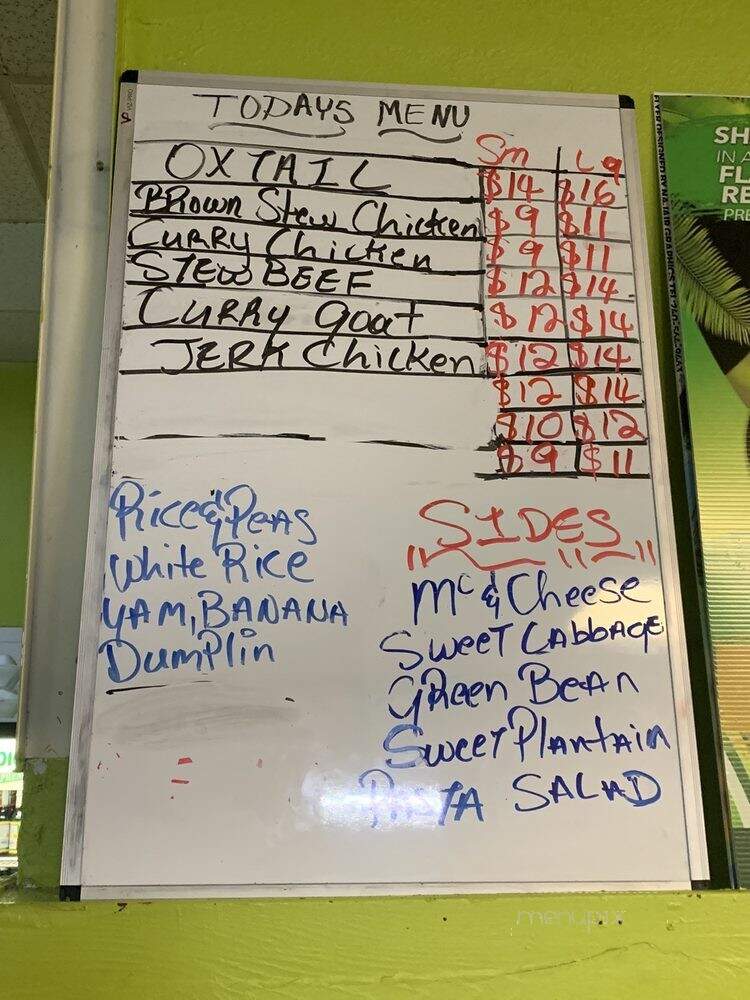 TODAYS MENU
Sm Lg
OXTAIL $14 $16
Brown Stew Chicken $9 $11
CURRY Chicken $9 $11
STEW BEEF $12 $14
CURRY goat $12 $14
JERK Chicken $12 $14
$12 $14
$10 $12
$9 $11
Rice & Peas
White Rice
YAM, BANANA
Dumplin
SIDES
Mc & Cheese
SWEET CABBAGE
GREEN BEAN
SWEET Plantain
PASTA SALAD
SH
IN A
FL
RE
PRE
menupix